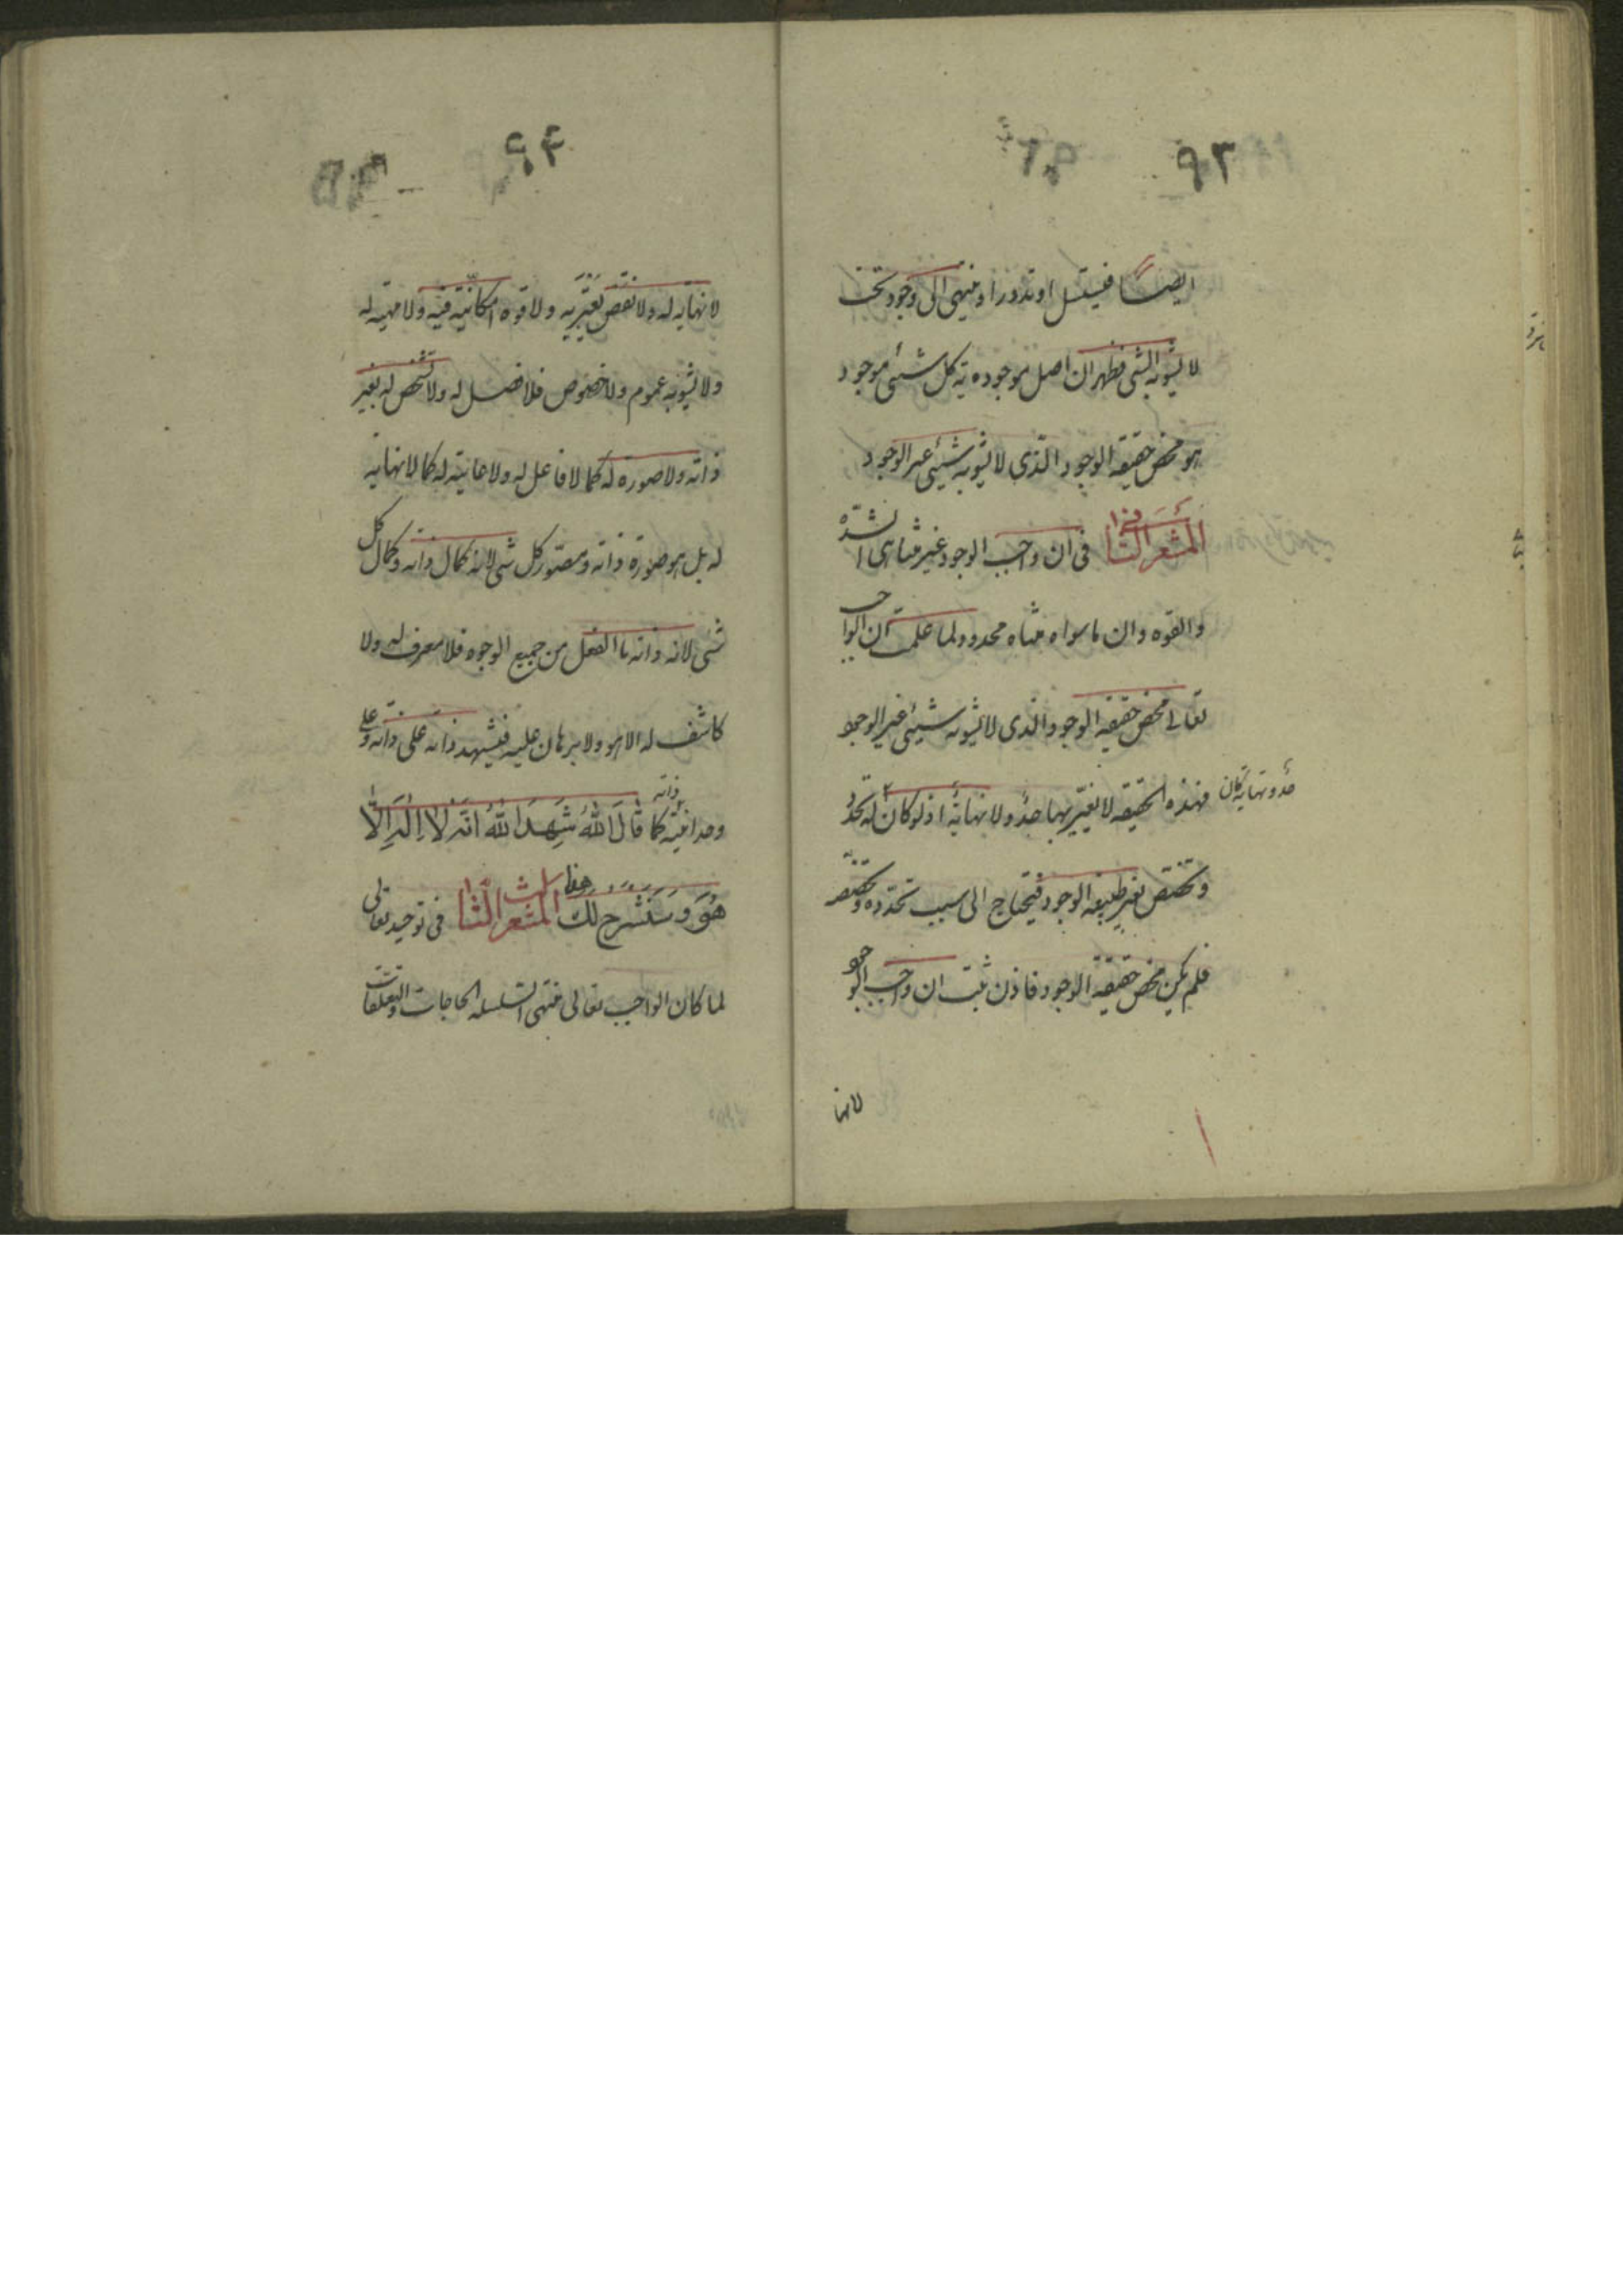 ٩٣
ايضا فيتسلسل او تدور او ينتهى الى وجود بحت
لا يشوبه شئ فظهر ان اصل موجوديه كل شئ موجود
هو محض حقيقه الوجود الذى لا يشوبه شيئى غير الوجود
المشعر الثانى فى ان واجب الوجود غير متناهى الشده
والقوه وان ما سواه متناه محدود ولما علمت ان الواجب
تعالى محض حقيقه الوجود الذى لا يشوبه شيئى غير الوجود
فهذه الحقيقه لا يعتريها حد ولا نهايه اذ لو كان له تحدد
حد و نهايه كان
و تخصص بغير طبيعه الوجود فيحتاج الى سبب تحدده و تخصصه
فلم يكن محض حقيقه الوجود فاذن ثبت ان واجب الوجود
لا نها
٩٤
لا نهايه له ولا نقص يعتريه ولا قوه امكانيه فيه ولا مهيه له
ولا يشوبه عموم ولا خصوص فلا فصل له ولا تشخص له بغير
ذاته ولا صوره له كما لا فاعل له ولا غايه له كما لا نهايه
له بل هو صورة ذاته و مصور كل شئ لانه كمال ذاته و كمال كل
شئ لانه ذاته بالفعل من جميع الوجوه فلا معرف له ولا
كاشف له الا هو ولا برهان عليه فيشهد ذاته على ذاته و على
وحدانيه ذاته كما قَالَ اللهُ شَهِدَ اللهُ اَنَّهُ لَا اِلٰهَ اِلَّا
هُوَ و سَنَشْرح لَك هذا المشعر الثالث فى توحيده تعالى
لما كان الواجب تعالى منتهى السلسله الحاجات و التعلقات